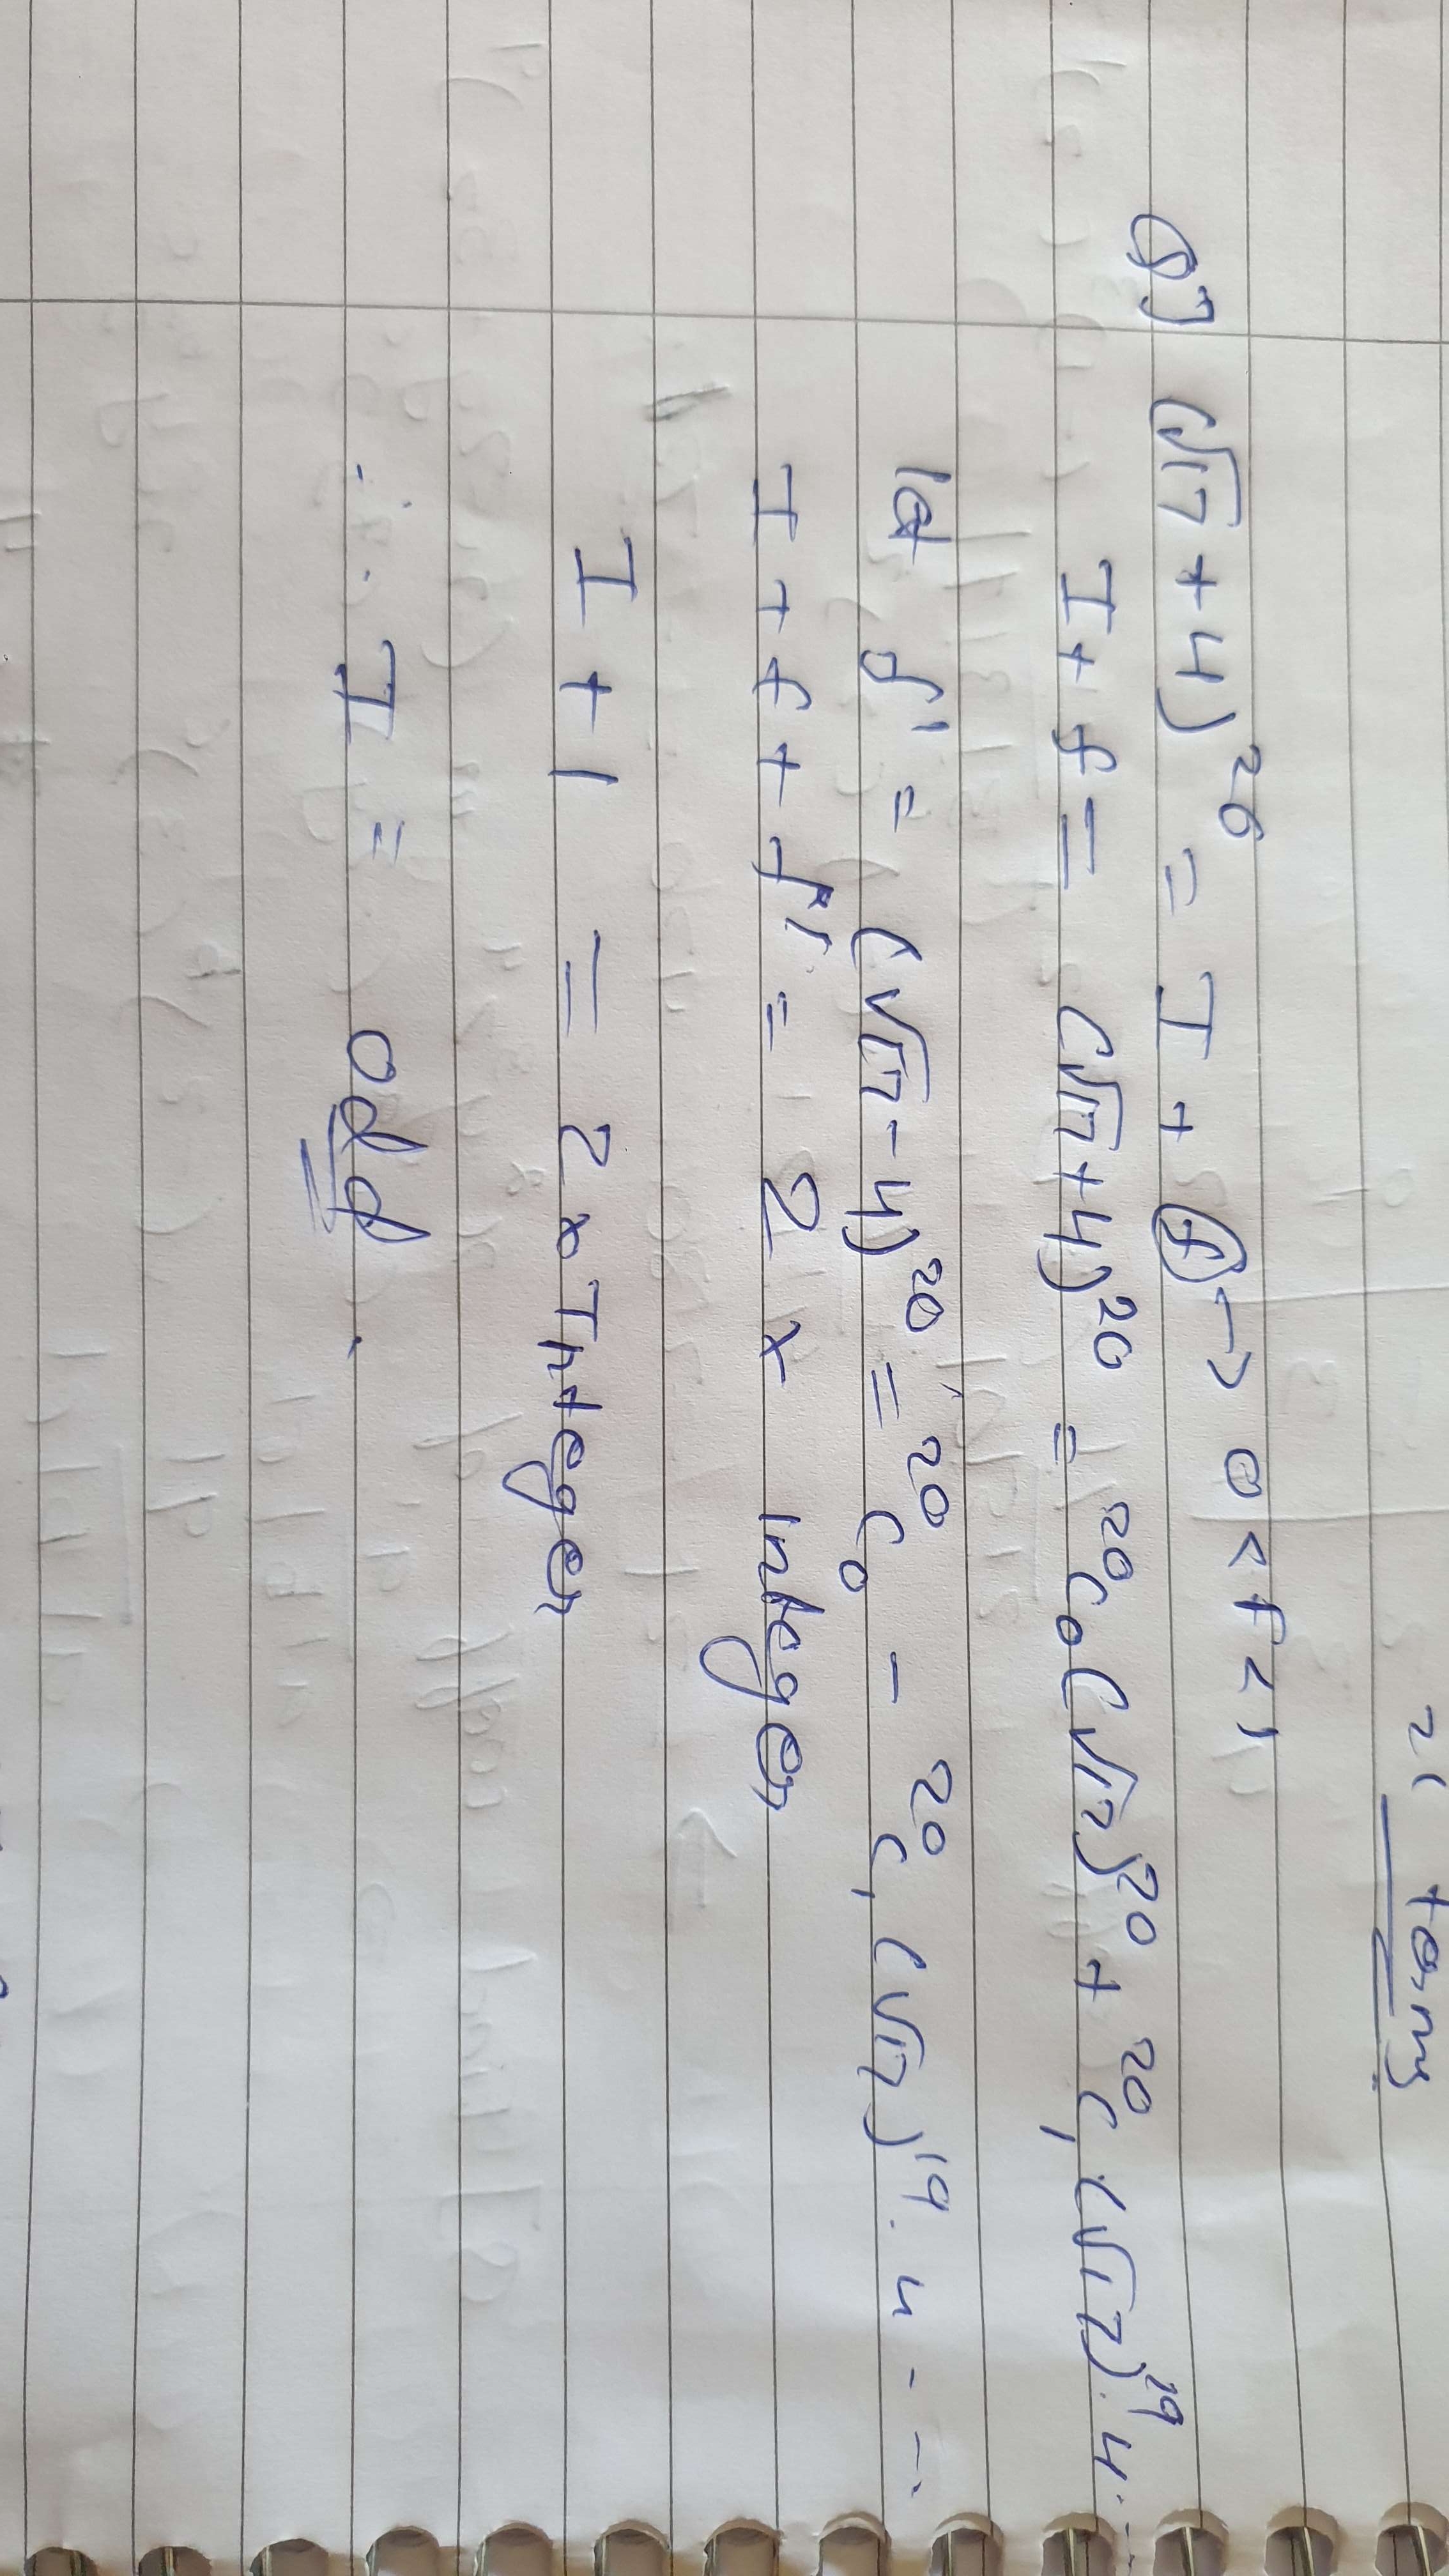 21 terms
Q] (√17 + 4)²⁰ = I + f → 0 < f < 1
I + f = (√17 + 4)²⁰ = ²⁰C₀ (√17)²⁰ + ²⁰C₁ (√17)¹⁹. 4 . . .
let f' = (√17 - 4)²⁰ = ²⁰C₀ - ²⁰C₁ (√17)¹⁹. 4 - - - .
I + f + f' = 2 x integer
I + 1 = 2 x Integer
∴ I = odd .